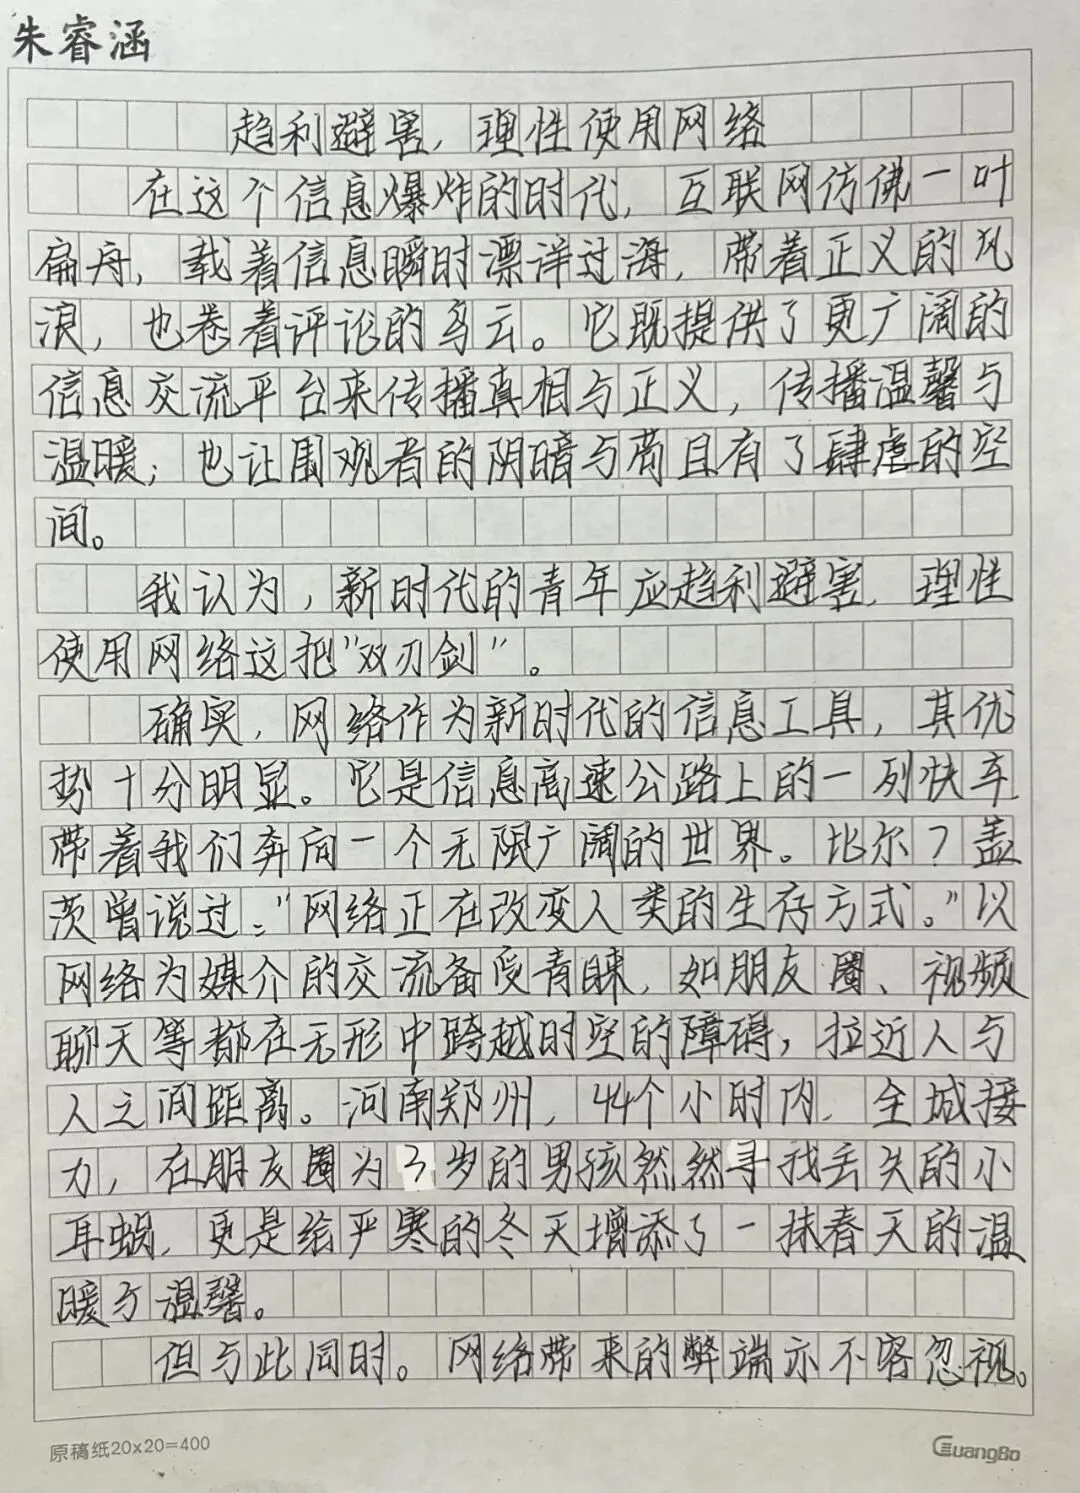 朱睿涵
趋利避害，理性使用网络
在这个信息爆炸的时代，互联网仿佛一叶
扁舟，载着信息瞬时漂洋过海，带着正义的风
浪，也卷着评论的乌云。它既提供了更广阔的
信息交流平台来传播真相与正义，传播温馨与
温暖；也让围观者的阴暗与苟且有了肆虐的空
间。
我认为，新时代的青年应趋利避害，理性
使用网络这把"双刃剑"。
确实，网络作为新时代的信息工具，其优
势十分明显。它是信息高速公路上的一列快车
带着我们奔向一个无限广阔的世界。比尔？盖
茨曾说过："网络正在改变人类的生存方式。"以
网络为媒介的交流备受青睐，如朋友圈、视频
聊天等都在无形中跨越时空的障碍，拉近人与
人之间距离。河南郑州，44个小时内，全城接
力，在朋友圈为3岁的男孩然然寻找丢失的小
耳蜗，更是给严寒的冬天增添了一抹春天的温
暖与温馨。
但与此同时。网络带来的弊端亦不容忽视。
原稿纸20x20=400
GuangBo